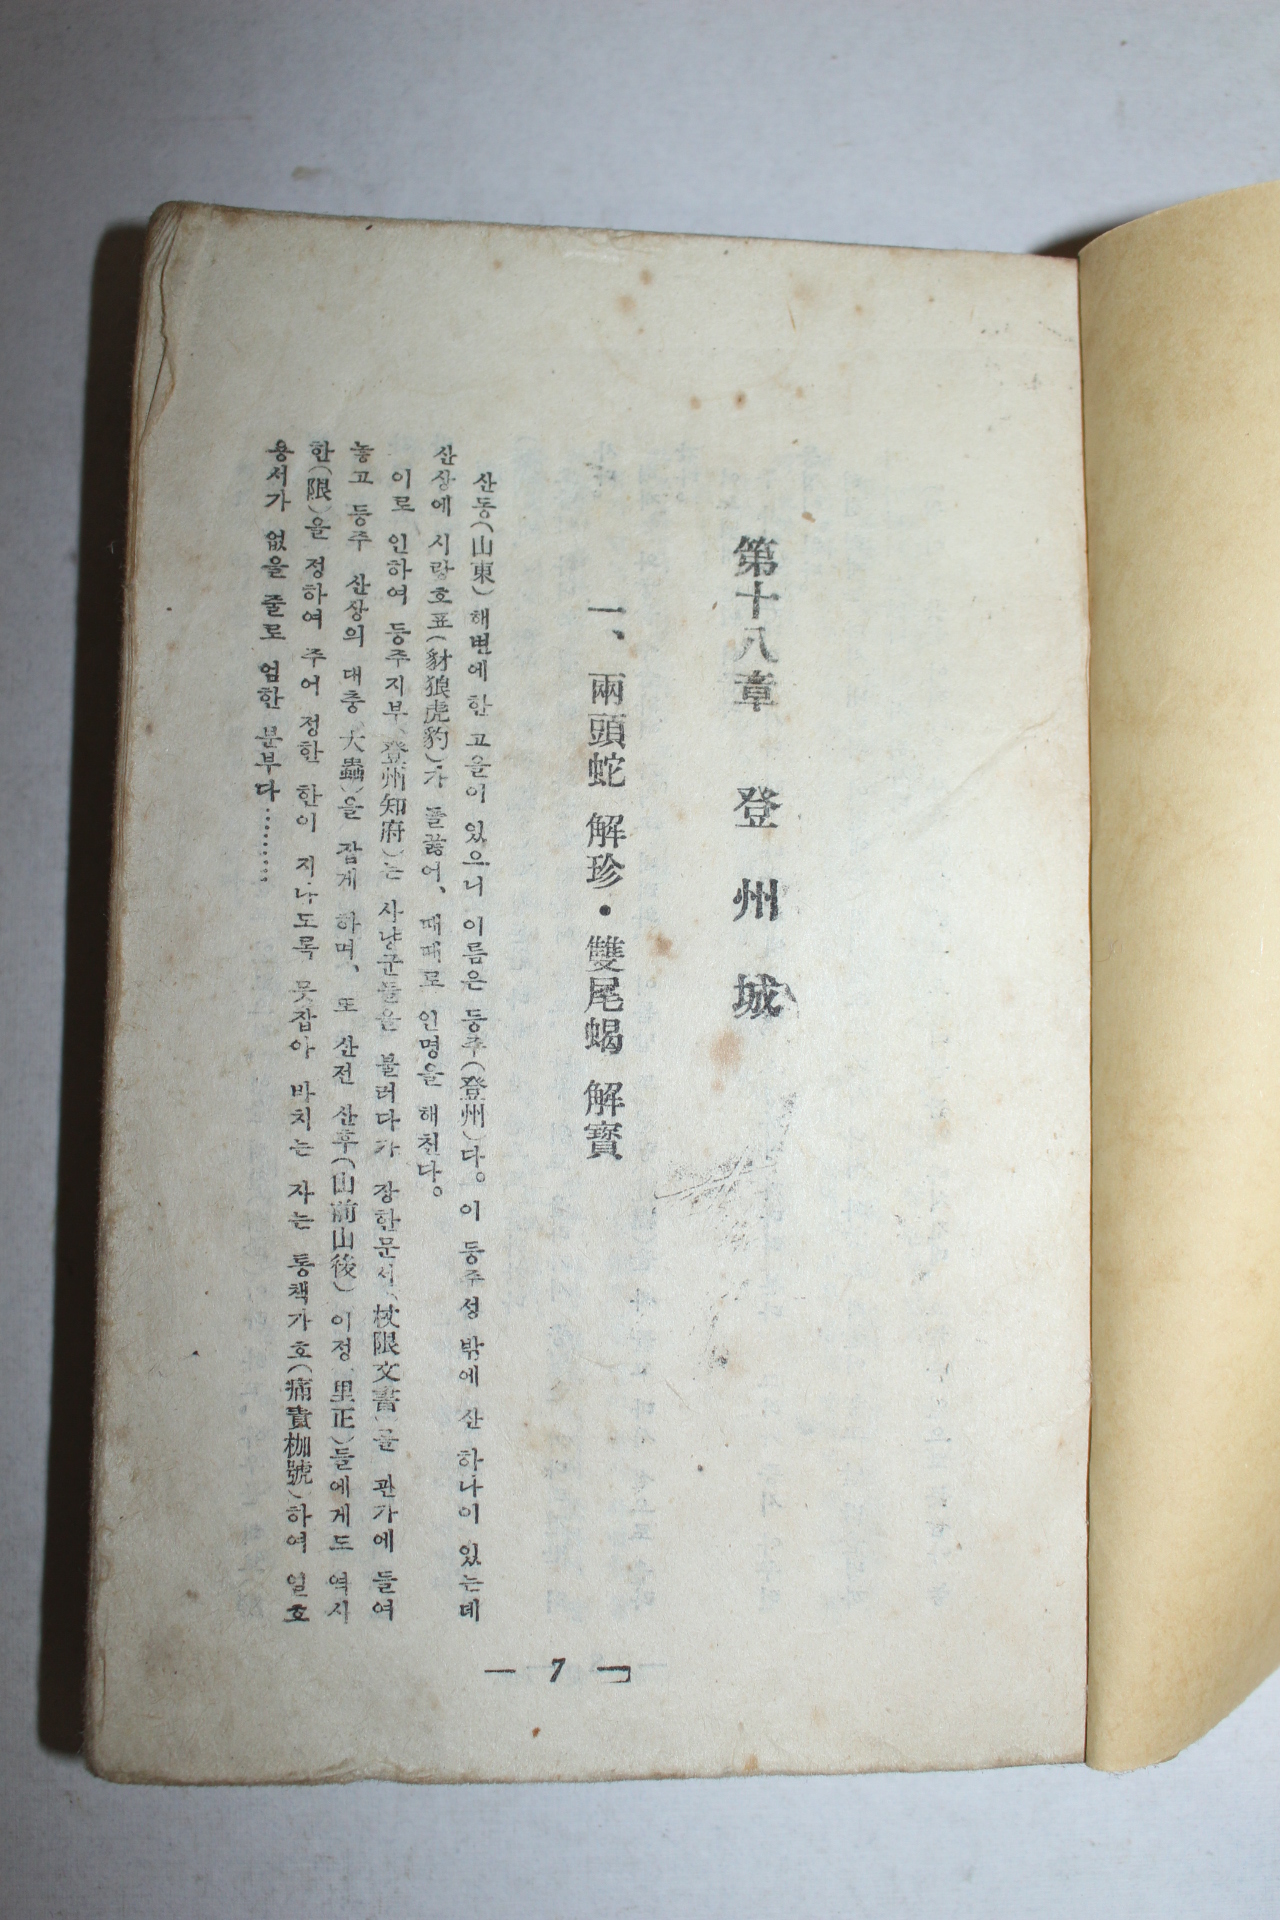 第十八章 登州城
一、兩頭蛇 解珍・雙尾蝎 解寶
산동(山東) 해변에 한 고을이 있으니 이름은 등주(登州)다。 이 등주성 밖에 산 하나이 있는데
산상에 시랑호표(豺狼虎豹)가 들끓어、 때때로 인명을 해친다。
이로 인하여 등주지부(登州知府)는 사냥군들을 불러다가 장한문서(杖限文書)를 관가에 들여
놓고 등주 산상의 대충(大蟲)을 잡게 하며、 또 산전 산후(山前山後) 이정(里正)들에게도 역시
한(限)을 정하여 주어 정한 한이 지나도록 못잡아 바치는 자는 통책가호(痛責枷號)하여 일호
용서가 없을 줄로 엄한 분부다………
— 7 —